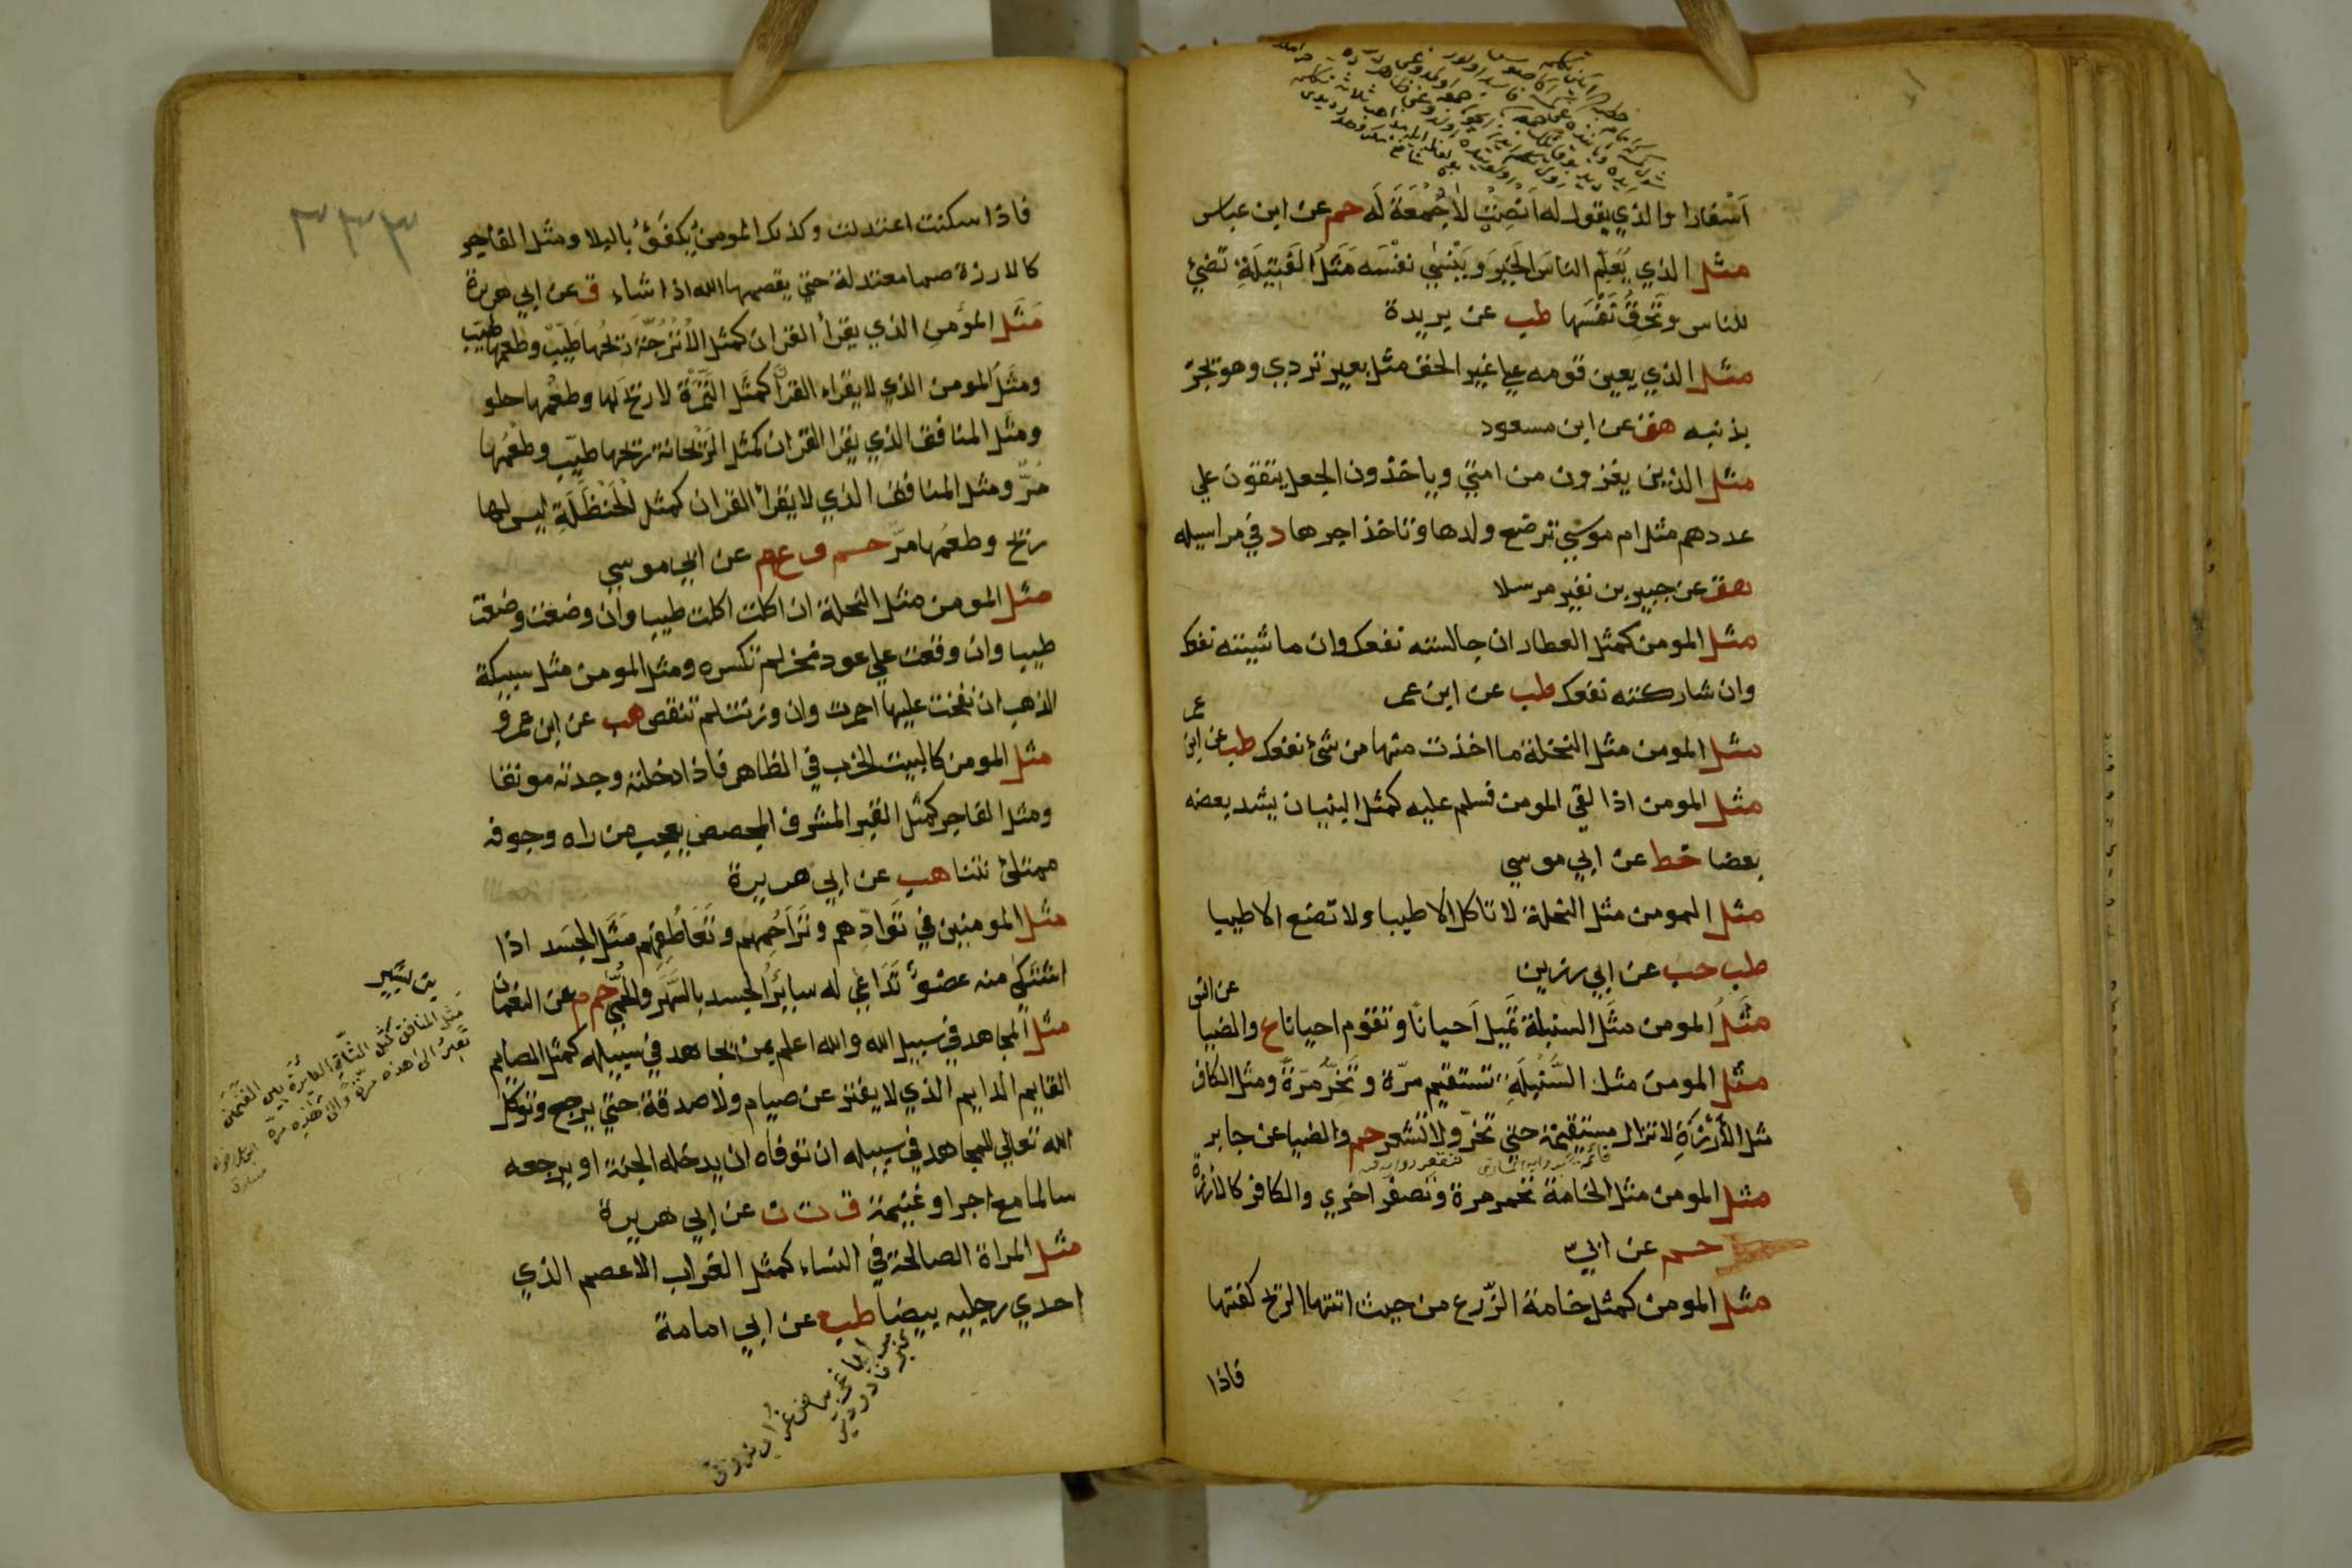 اَسْفارا والذي يقول له اَنصِتْ لا جُمُعَةَ لَه حم عن ابن عباس
مثل الذي يُعَلِّم الناسَ الخيرَ ويَنْسٰي نفْسَه مَثَلُ الفَتِيلَةِ تضيئ
للناس وتُحْرِقُ نَفْسَها طب عن بريدة
مثل الذي يعين قومه علي غير الحق مثل بعير تردي وهو يجرّ
بذنبه هق عن ابن مسعود
مثل الذين يغزون من امتي وياخذون الجعل يتقوّون علي
عددهم مثل ام موسي ترضع ولدها وتاخذ اجرها د في مراسيله
هق عن جبير بن نفير مرسلا
مثل المومن كمثل العطار ان جالسته نفعك وان ماشيته نفعك
وان شاركته نفعك طب عن ابن عمر
مثل المومن مثل النخلة ما اخذت منها من شئ نفعك طب عن ابن عمر
مثل المومن اذا لقي المومن فسلم عليه كمثل البنيان يشد بعضه
بعضا خط عن ابي موسي
مثل المومن مثل النحلة لا تاكل الا طيبا ولا تضع الا طيبا
طب حب عن ابي رزين
مثَلُ المومن مثَل السنبلة تَمِيل اَحيانًا وتقوم احيانا ع والضيا عن انس
مثل المومن مثل السُّنْبلَةِ تستقيم مرّة وتَخِرُّ مرّةً ومثل الكافر
مثل الأَرْزَةِ لا تزال مستقيمة حتي تخرّ ولا تشعر حم والضيا عن جابر
مثل المومن مثل الخامة تحمر مرة وتصفر اخري والكافر كالأرْزة
حم عن ابيّ
مثل المومن كمثل خامة الزّرع من حيث اتتها الريح كفتها
فاذا
٣٣٣
فاذا سكنت اعتدلت وكذلك المومن يُكفَّؤُ بالبلا ومثل الفاجر
كالارزة صما معتدلة حتي يقصمها الله اذا شاء ق عن ابي هريرة
مَثَل المؤمنِ الذي يقرأ القران كمثل الأُتْرُجّة ريحُها طَيِّبٌ وطعمها طيّب
ومثَل المومن الذي لا يقراء القرآن كمثَل التَّمْرَة لا ريحَ لها وطعْمها حلو
ومثَل المنافق الذي يقرا القران كمثل الرَّيْحانة ريحها طيّب وطعْمُها
مُرّ ومثل المنافق الذي لا يقرأ القران كمثل الْحَنْظَلَةِ ليس لها
ريح وطعمُها مرّ حم ق عم عن ابي موسي
مثل المومن مثل النحلة ان اكلت اكلت طيبا وان وضعت وضعت
طيبا وان وقعت علي عود نخر لم تكسره ومثل المومن مثل سبيكة
الذهب ان نفخت عليها احمرت وان وزنت لم تنقص هب عن ابن عمرو
مثل المومن كالبيت الخرب في الظاهر فاذا دخلته وجدته مونقا
ومثل الفاجر كمثل القبر المشرف المجصص يعجب من راه وجوفه
ممتلئ نتنا هب عن ابي هريرة
مثل المومنين في تَوادّهم وتَراحُمِهم وتَعَاطُفِهم مَثَل الجسَد اذا
اشتكٰي منه عضوٌ تَدَاعٰي له سايرُ الجسد بالسّهَر والحُمّي حم م عن النعمان
بن بشير
مثَل المجاهد في سبيل الله والله اعلم بمن يجاهد في سبيله كمثل الصايم
القايم الدايم الذي لا يفتر عن صيام ولا صدقة حتي يرجع وتوكل
الله تعالي للمجاهد في سبيله ان توفاه ان يدخله الجنة او يرجعه
سالما مع اجر او غنيمة ق ت ن عن ابي هريرة
مثل المراة الصالحة في النساء كمثل الغراب الاعصم الذي
احدي رجليه بيضا طب عن ابي امامة
مثَل المنافق كمثل الشّاةِ العايرة بين الغنَمَين
تَعيرُ الي هذه مرّة والي هذه مرّة